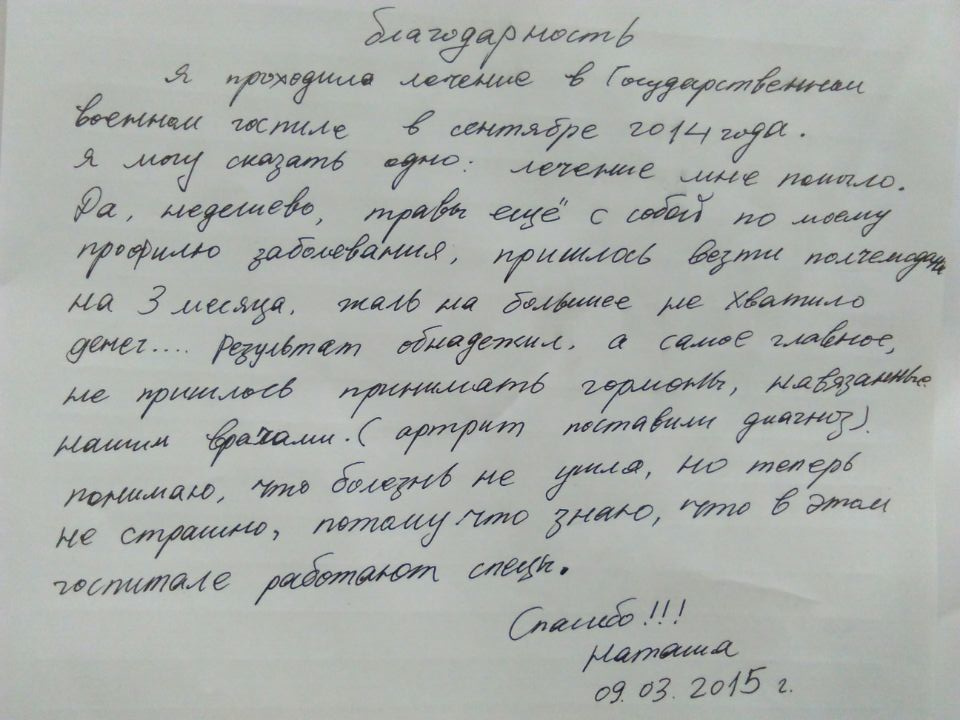 благодарность
Я проходила лечение в Государственном
военном госпиле в сентябре 2014 года.
Я могу сказать одно: лечение мне помогло.
Да, недешево, травы ещё с собой по моему
профилю заболевания, пришлось везти полчемодана
на 3 месяца. жаль на большее не хватило
денег.... Результат обнадежил. а самое главное,
не пришлось принимать гормоны, навязанные
нашим врачами. (артрит поставили диагноз).
понимаю, что болезнь не ушла, но теперь
не страшно, потому что знаю, что в этом
госпитале работают спецы.
Спасибо!!!
Наташа
09.03.2015 г.